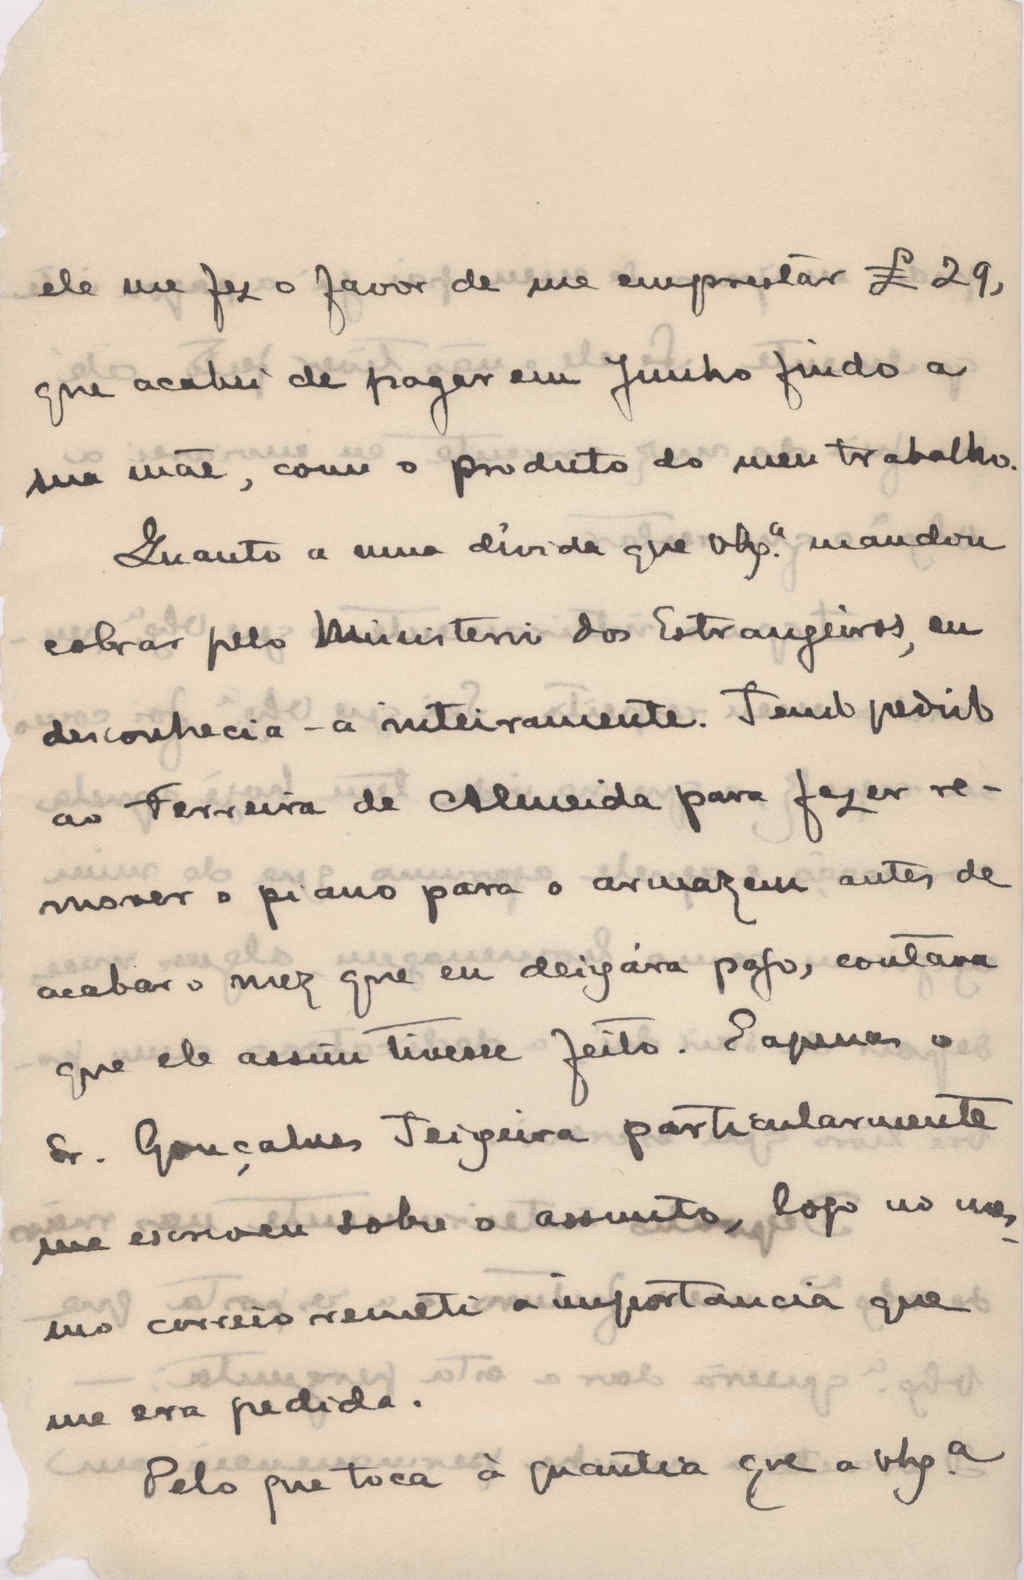 ele me fez o favor de me emprestár £ 29,
que acabei de pagar em Junho findo a
sua mãe, com o produto do meu trabalho.
Quanto a uma dívida que VEx.ª mandou
cobrar pelo Ministerio dos Estrangeiros, eu
desconhecia-a inteiramente. Tendo pedido
ao Ferreira de Almeida para fazer re-
mover o piano para o armazem antes de
acabar o mez que eu deixára pago, contava
que ele assim tivesse feito. E apenas o
Sr. Gonçalves Teixeira particularmente
me escreveu sobre o assunto, logo no mes-
mo correio remeti a importancia que
me era pedida.
Pelo que toca à quantia que a VEx.ª